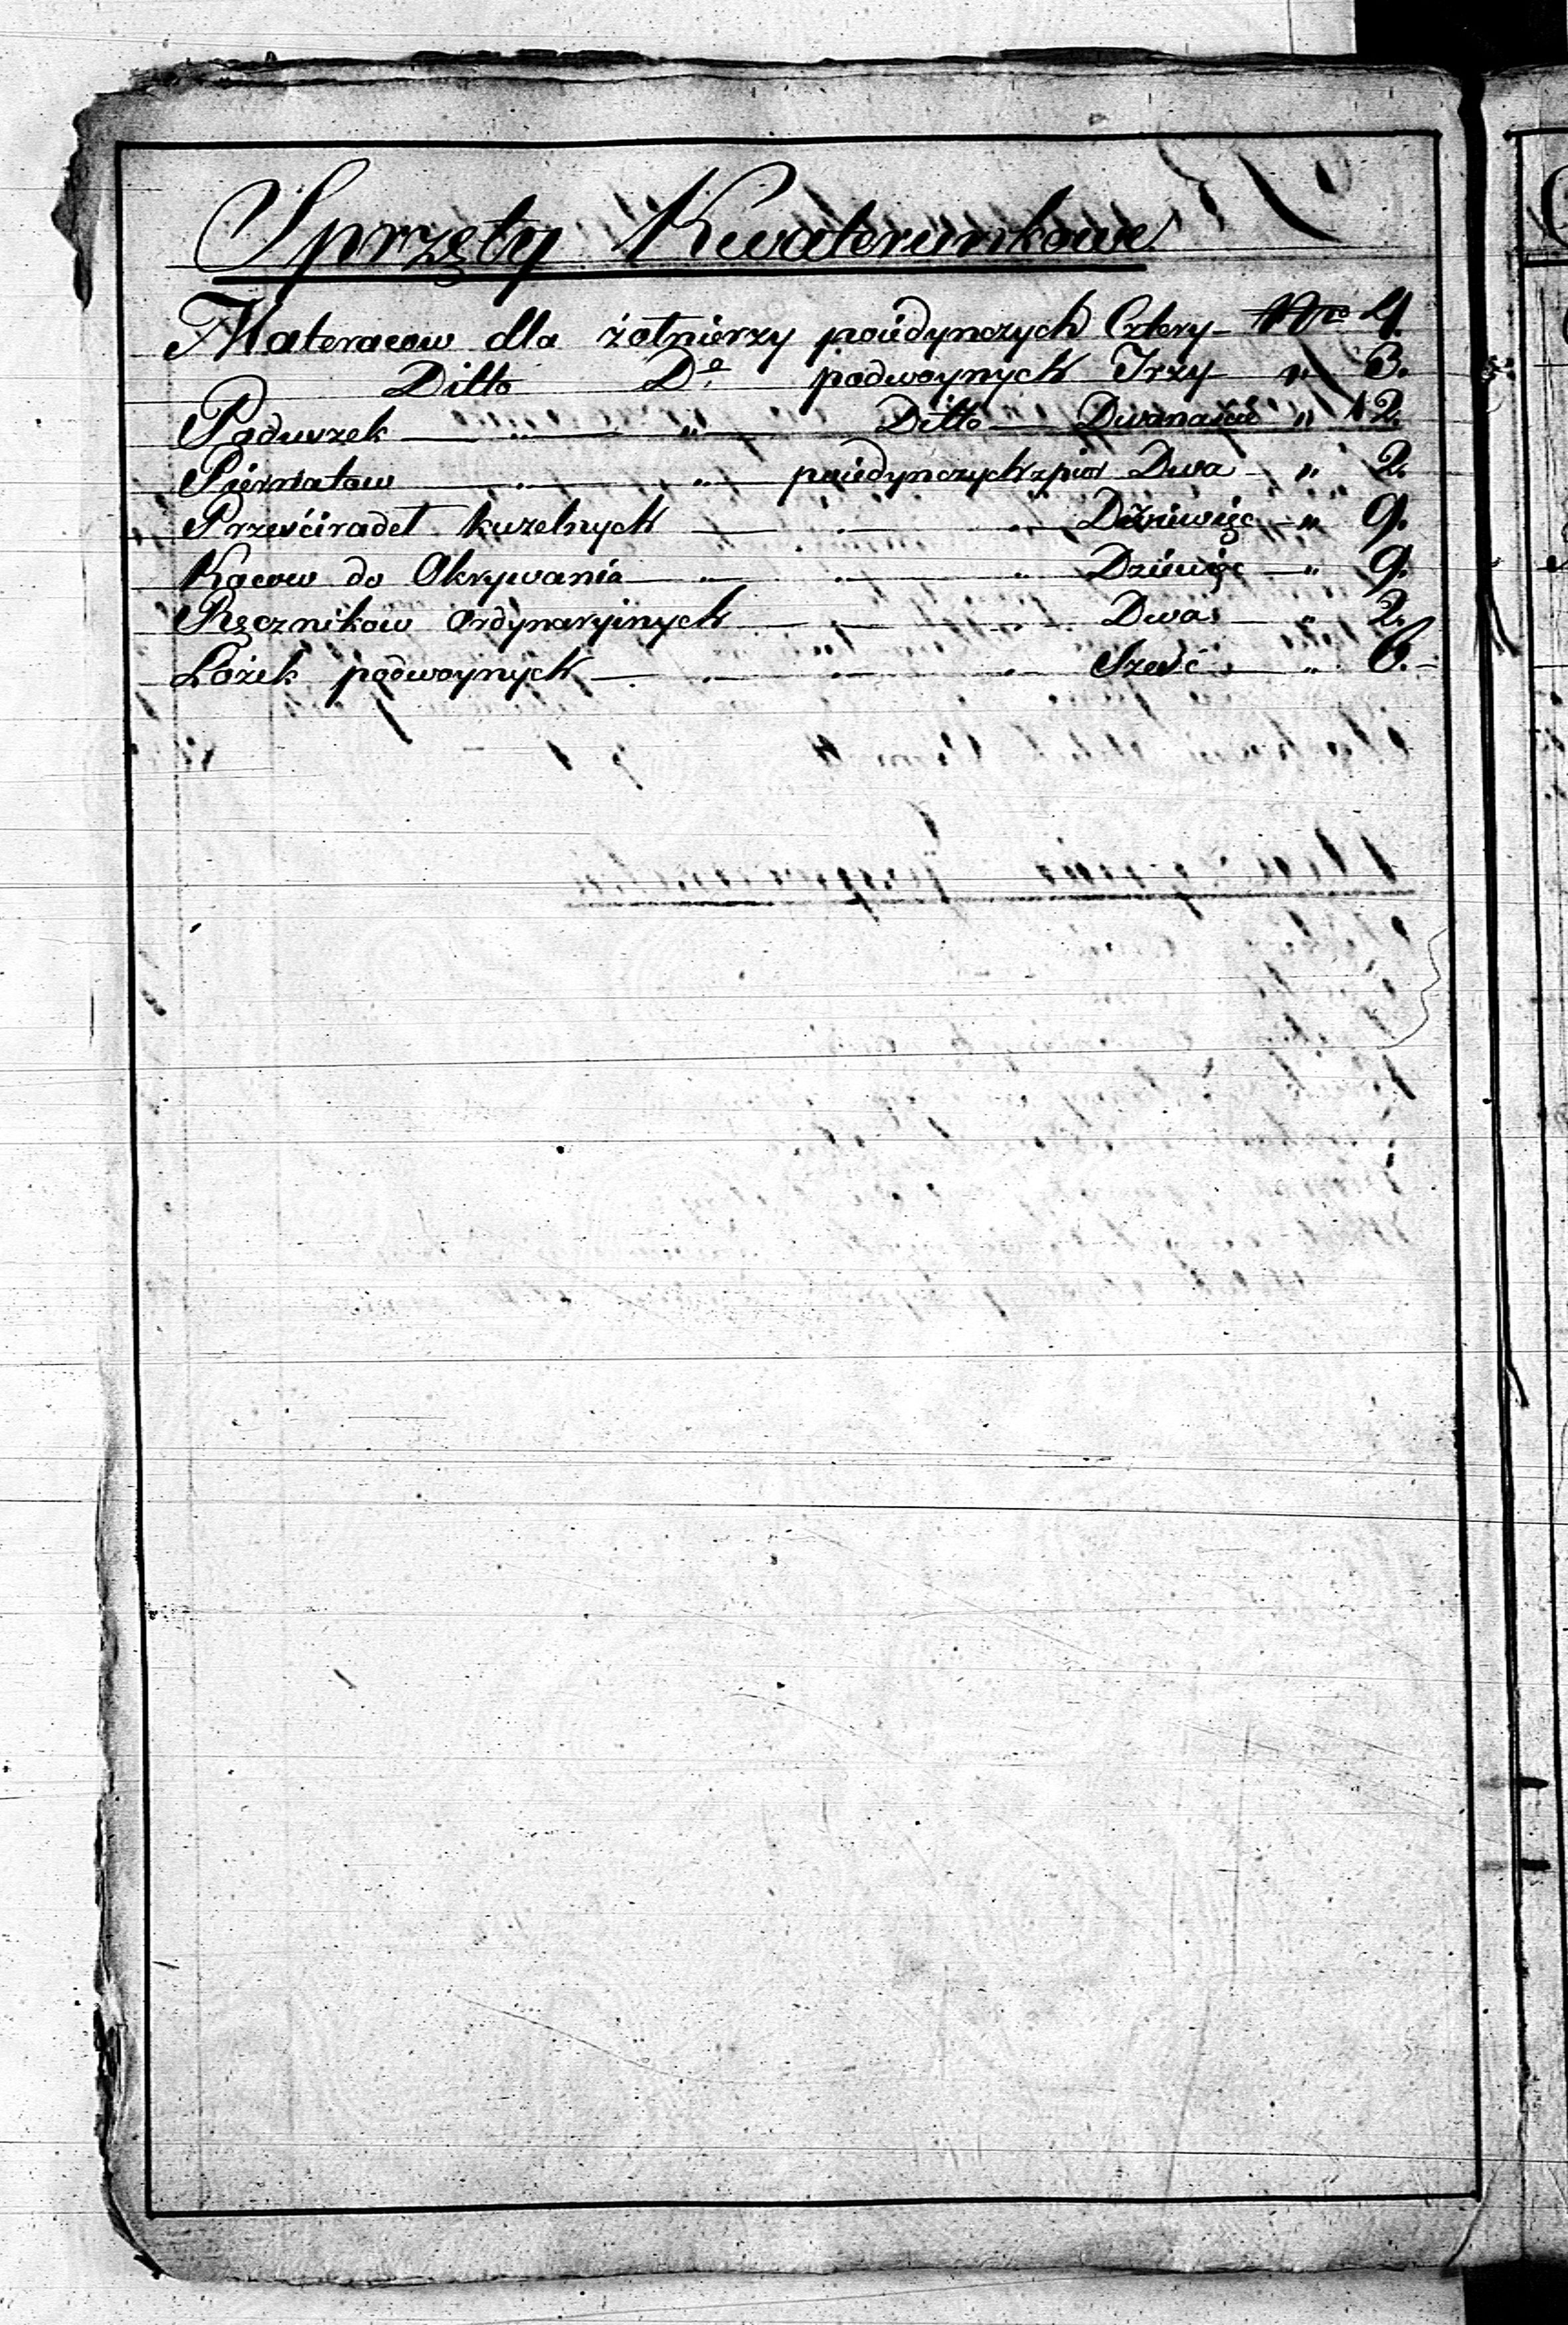 Sprzęty Kwaterunkowe
Materacow dla żołnierzy poiedynczych Cztery — Nro 4.
Ditto Do podwoynych Trzy — " 3.
Poduszek — " — " — Ditto — Dwanaście " 12.
Piernatow — " — " poiedynczych z pior Dwa — " 2.
Prześciradeł kuzelnych — " — " — Dziewięc — " 9.
Kocow do Okrywania — " — " — " Dziewięc — " 9.
Ręcznikow Ordynaryinych — " — " — Dwa — " 2.
Łożek podwoynych — " — " — " Sześć — " 6.